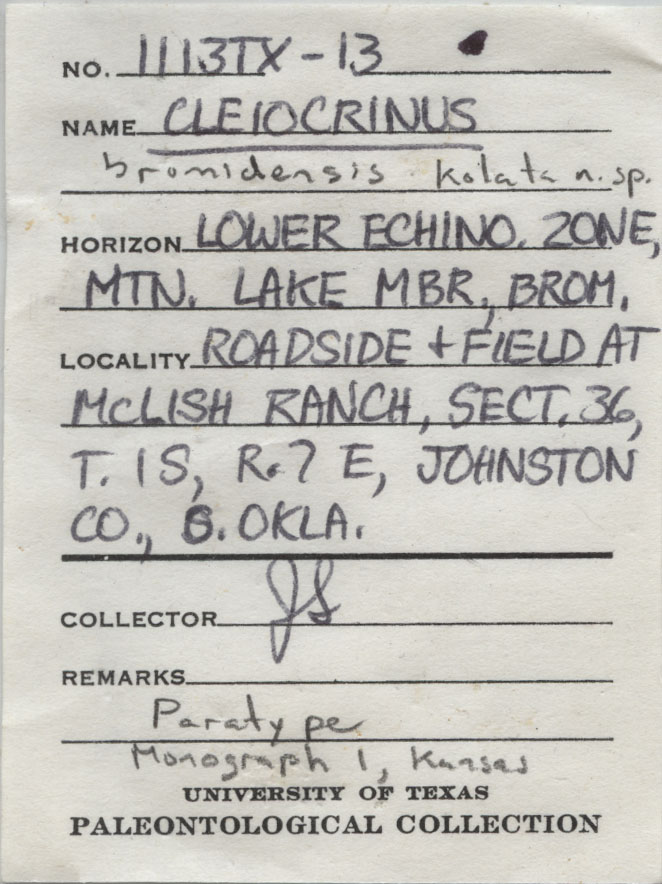 NO. 1113TX-13
NAME CLEIOCRINUS
bromidensis Kolata n. sp.
HORIZON LOWER ECHINO. ZONE,
MTN. LAKE MBR, BROM.
LOCALITY ROADSIDE + FIELD AT
McLISH RANCH, SECT. 36,
T. 1 S, R. 7 E, JOHNSTON
CO., S. OKLA.
COLLECTOR JS
REMARKS
Paratype
Monograph 1, Kansas
UNIVERSITY OF TEXAS
PALEONTOLOGICAL COLLECTION